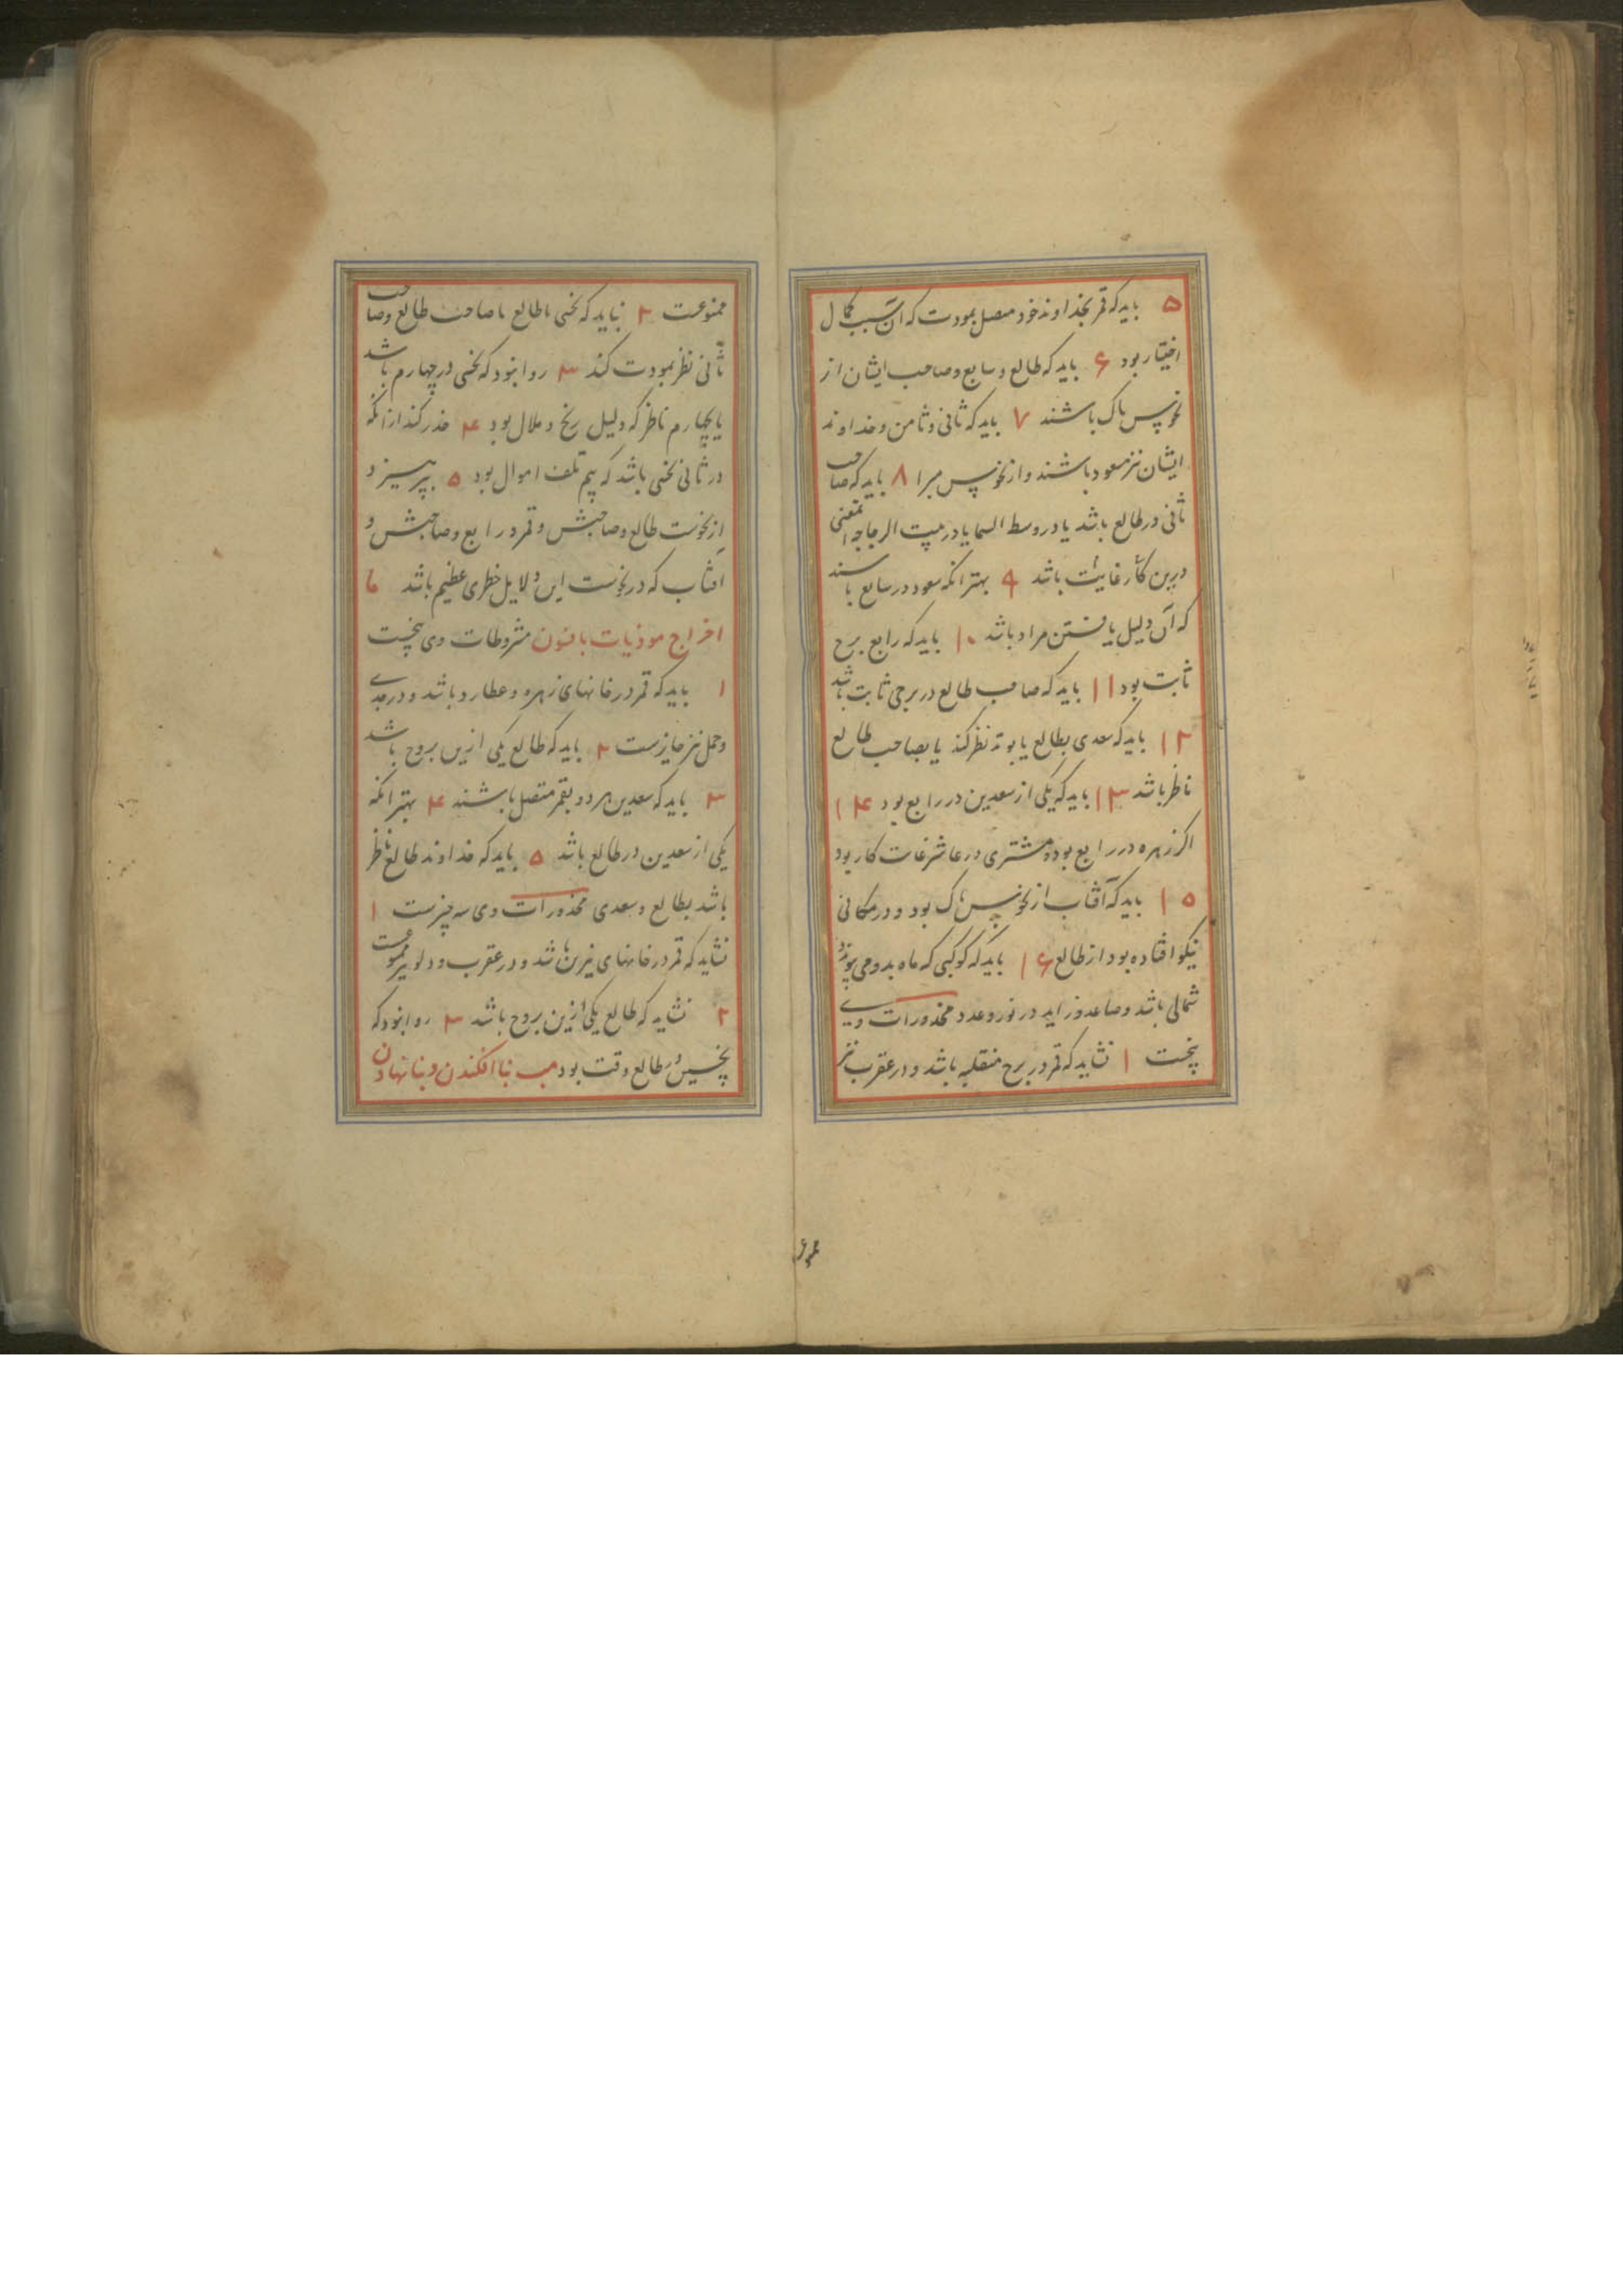 ۵ باید که قمر بخداوند خود متصل بمودت که آن سبب کمال
اختیار بود ۶ باید که طالع و سابع و صاحب ایشان از
نحوس پاک باشند ۷ باید که ثانی و ثامن و خداوند
ایشان نیز مسعود باشند و از نحوس مبرا ۸ باید که صاحب
ثانی در طالع باشد یا در وسط السما یا در بیت الرجا چه این معنی
درین کار غایت باشد ۹ بهتر انکه سعود در سابع باشند
که آن دلیل یافتن مراد باشد ۱۰ باید که رابع برج
ثابت بود ۱۱ باید که صاحب طالع در برجی ثابت باشد
۱۲ باید که سعدی بطالع یا بوتد نظر کند یا بصاحب طالع
ناظر باشد ۱۳ باید که یکی از سعدین در رابع بود ۱۴
اکر زهره در رابع بود و مشتری در عاشر غایت کار بود
۱۵ باید که آفتاب از نحوس پاک بود و در مکانی
نیکو افتاده بود از طالع ۱۶ باید که کوکبی که ماه بدو می پیوندد
شمالی باشد و صاعد و زاید در نور و عدد محذورات وی
پنجست ۱ نشاید که قمر در برج منقلبه باشد و در عقرب نیز
ممنوعست ۲ نباید که نحسی با طالع یا صاحب طالع و صاحب
ثانی نظر بمودت کند ۳ روا نبود که نحسی در چهارم باشد
یا بچهارم ناظر که دلیل رنج و ملال بود ۴ حذر کند از انکه
در ثانی نحسی باشد که بیم تلف اموال بود ۵ بپرهیزد
از نحوست طالع و صاحبش و قمر و رابع و صاحبش و
آفتاب که در نحوست این دلایل خطری عظیم باشد ما
اخراج موذیات بافسون مشروطات وی پنجست
۱ باید که قمر در خانهای زهره و عطارد باشد و در جدی
و حمل نیز جایزست ۲ باید که طالع یکی ازین بروج باشد
۳ باید که سعدین هر دو بقمر متصل باشند ۴ بهتر انکه
یکی از سعدین در طالع باشد ۵ باید که خداوند طالع ناظر
باشد بطالع و سعدی محذورات وی سه چیزست ۱
نشاید که قمر در خانهای نیرین باشد و در عقرب و دلو نیز ممنوعست
۲ نشاید که طالع یکی ازین بروج باشد ۳ روا نبود که
نحسین در طالع وقت بود مب بنا افکندن و بنا نهادن